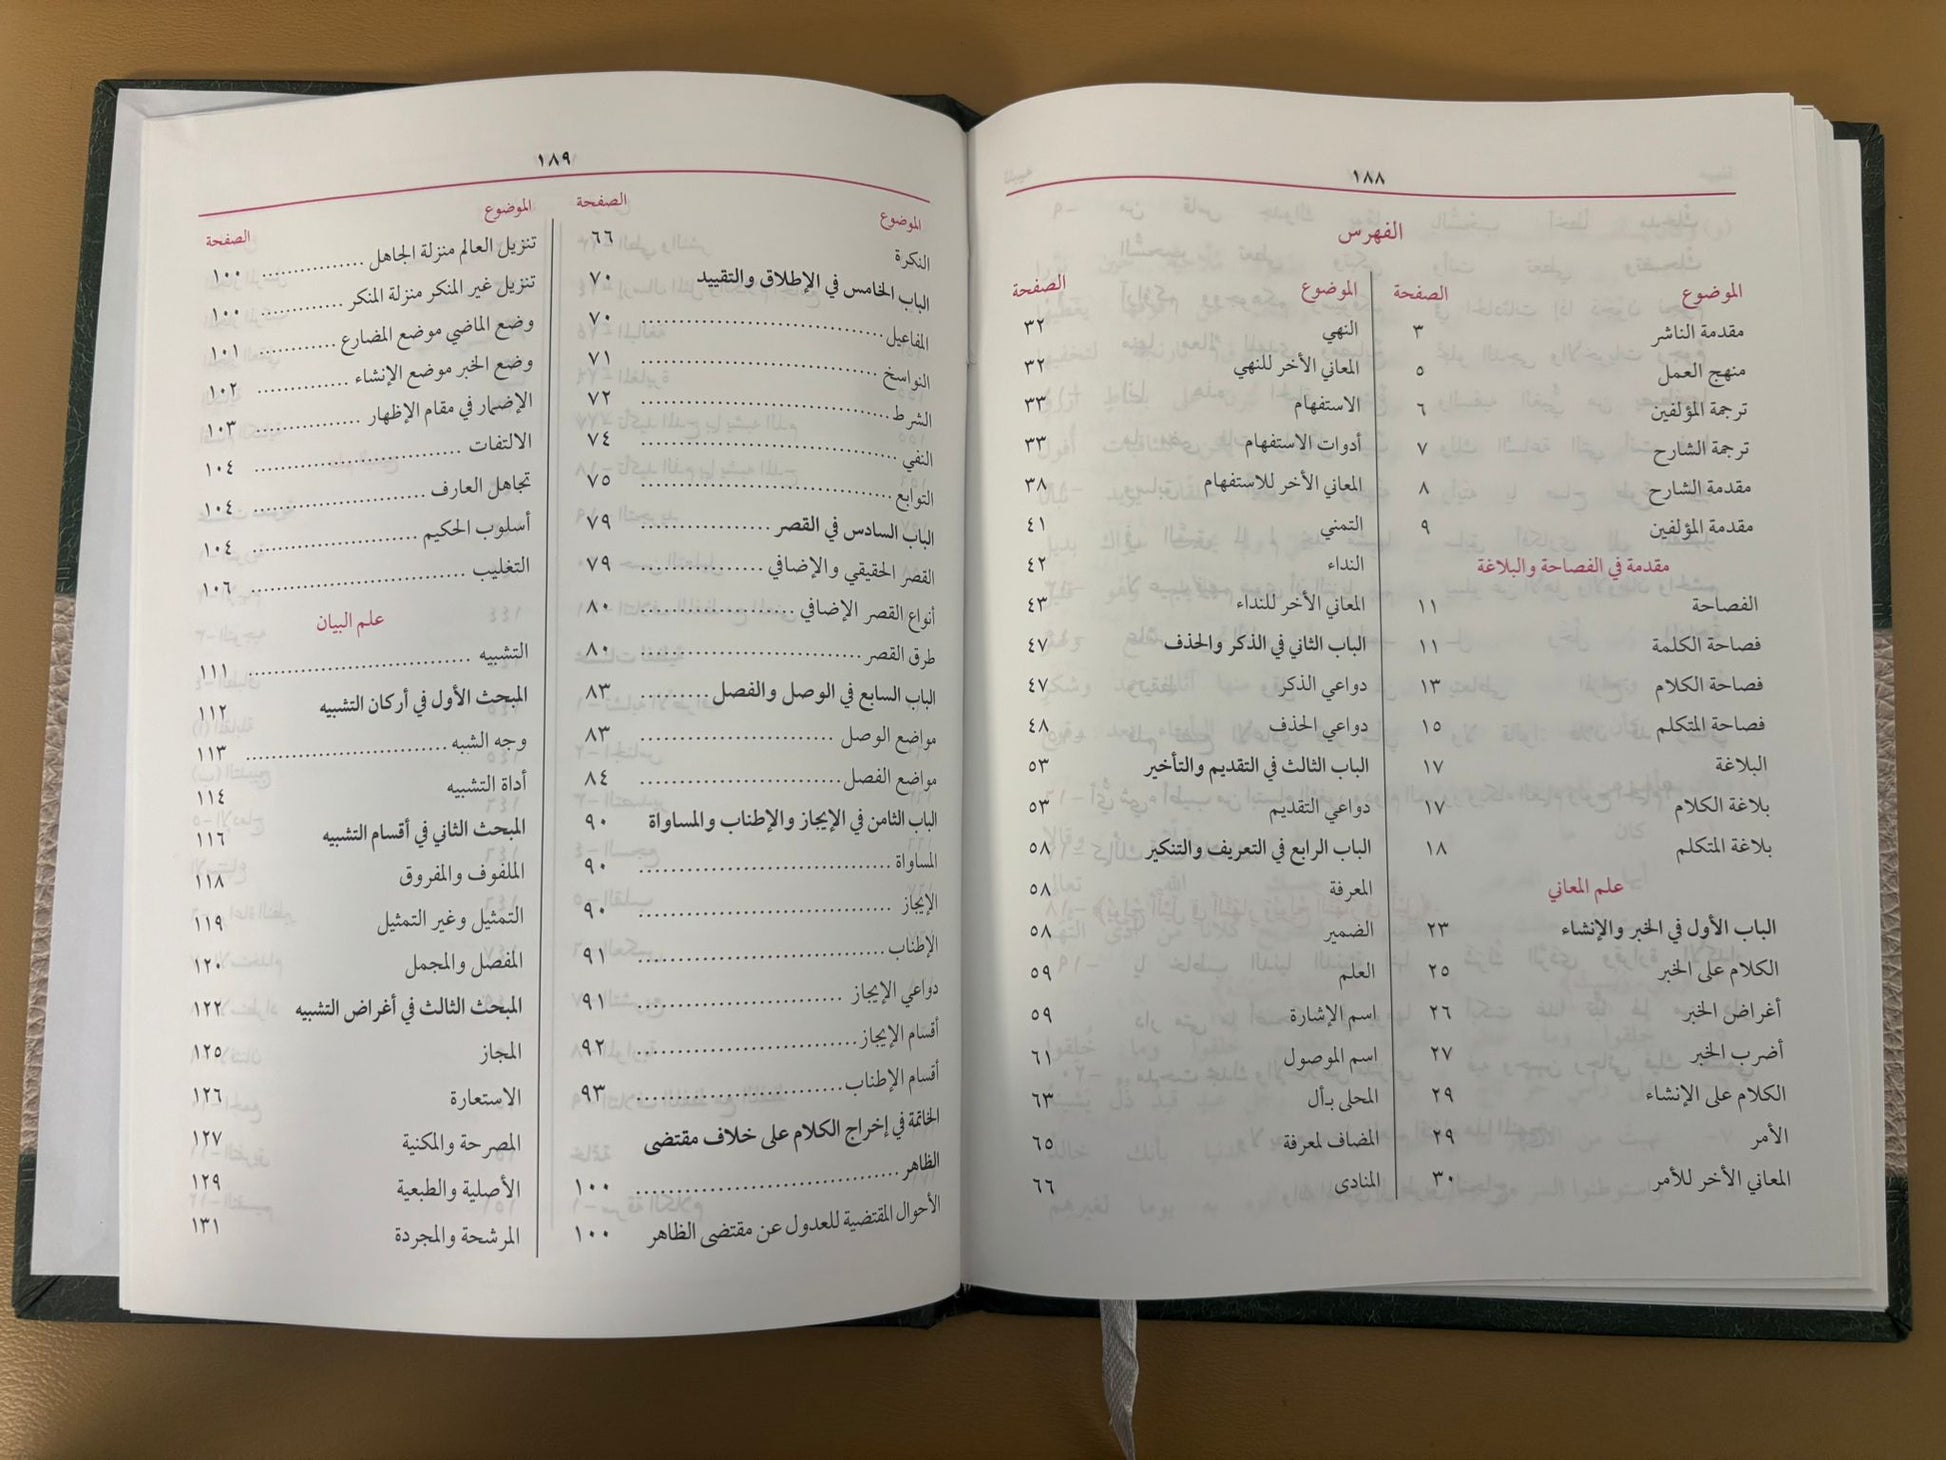 ١٨٨
الفهرس
الموضوع الصفحة
مقدمة الناشر ٣
منهج العمل ٥
ترجمة المؤلفين ٦
ترجمة الشارح ٧
مقدمة الشارح ٨
مقدمة المؤلفين ٩
مقدمة في الفصاحة والبلاغة
الفصاحة ١١
فصاحة الكلمة ١١
فصاحة الكلام ١٣
فصاحة المتكلم ١٥
البلاغة ١٧
بلاغة الكلام ١٧
بلاغة المتكلم ١٨
علم المعاني
الباب الأول في الخبر والإنشاء ٢٣
الكلام على الخبر ٢٥
أغراض الخبر ٢٦
أضرب الخبر ٢٧
الكلام على الإنشاء ٢٩
الأمر ٢٩
المعاني الأخر للأمر ٣٠
الموضوع الصفحة
النهي ٣٢
المعاني الأخر للنهي ٣٢
الاستفهام ٣٣
أدوات الاستفهام ٣٣
المعاني الأخر للاستفهام ٣٨
التمني ٤١
النداء ٤٢
المعاني الأخر للنداء ٤٣
الباب الثاني في الذكر والحذف ٤٧
دواعي الذكر ٤٧
دواعي الحذف ٤٨
الباب الثالث في التقديم والتأخير ٥٣
دواعي التقديم ٥٣
الباب الرابع في التعريف والتنكير ٥٨
المعرفة ٥٨
الضمير ٥٨
العلم ٥٩
اسم الإشارة ٥٩
اسم الموصول ٦١
المحلى بـأل ٦٣
المضاف لمعرفة ٦٥
المنادى ٦٦
١٨٩
الموضوع الصفحة
النكرة ٦٦
الباب الخامس في الإطلاق والتقييد ٧٠
المفاعيل ٧٠
النواسخ ٧١
الشرط ٧٢
النفي ٧٤
التوابع ٧٥
الباب السادس في القصر ٧٩
القصر الحقيقي والإضافي ٧٩
أنواع القصر الإضافي ٨٠
طرق القصر ٨٠
الباب السابع في الوصل والفصل ٨٣
مواضع الوصل ٨٣
مواضع الفصل ٨٤
الباب الثامن في الإيجاز والإطناب والمساواة ٩٠
المساواة ٩٠
الإيجاز ٩٠
الإطناب ٩١
دواعي الإيجاز ٩١
أقسام الإيجاز ٩٢
أقسام الإطناب ٩٣
الخاتمة في إخراج الكلام على خلاف مقتضى
الظاهر ١٠٠
الأحوال المقتضية للعدول عن مقتضى الظاهر ١٠٠
الموضوع الصفحة
تنزيل العالم منزلة الجاهل ١٠٠
تنزيل غير المنكر منزلة المنكر ١٠٠
وضع الماضي موضع المضارع ١٠١
وضع الخبر موضع الإنشاء ١٠٢
الإضمار في مقام الإظهار ١٠٣
الالتفات ١٠٤
تجاهل العارف ١٠٤
أسلوب الحكيم ١٠٤
التغليب ١٠٦
علم البيان
التشبيه ١١١
المبحث الأول في أركان التشبيه ١١٢
وجه الشبه ١١٣
أداة التشبيه ١١٤
المبحث الثاني في أقسام التشبيه ١١٦
الملفوف والمفروق ١١٨
التمثيل وغير التمثيل ١١٩
المفصل والمجمل ١٢٠
المبحث الثالث في أغراض التشبيه ١٢٢
المجاز ١٢٥
الاستعارة ١٢٦
المصرحة والمكنية ١٢٧
الأصلية والطبعية ١٢٩
المرشحة والمجردة ١٣١